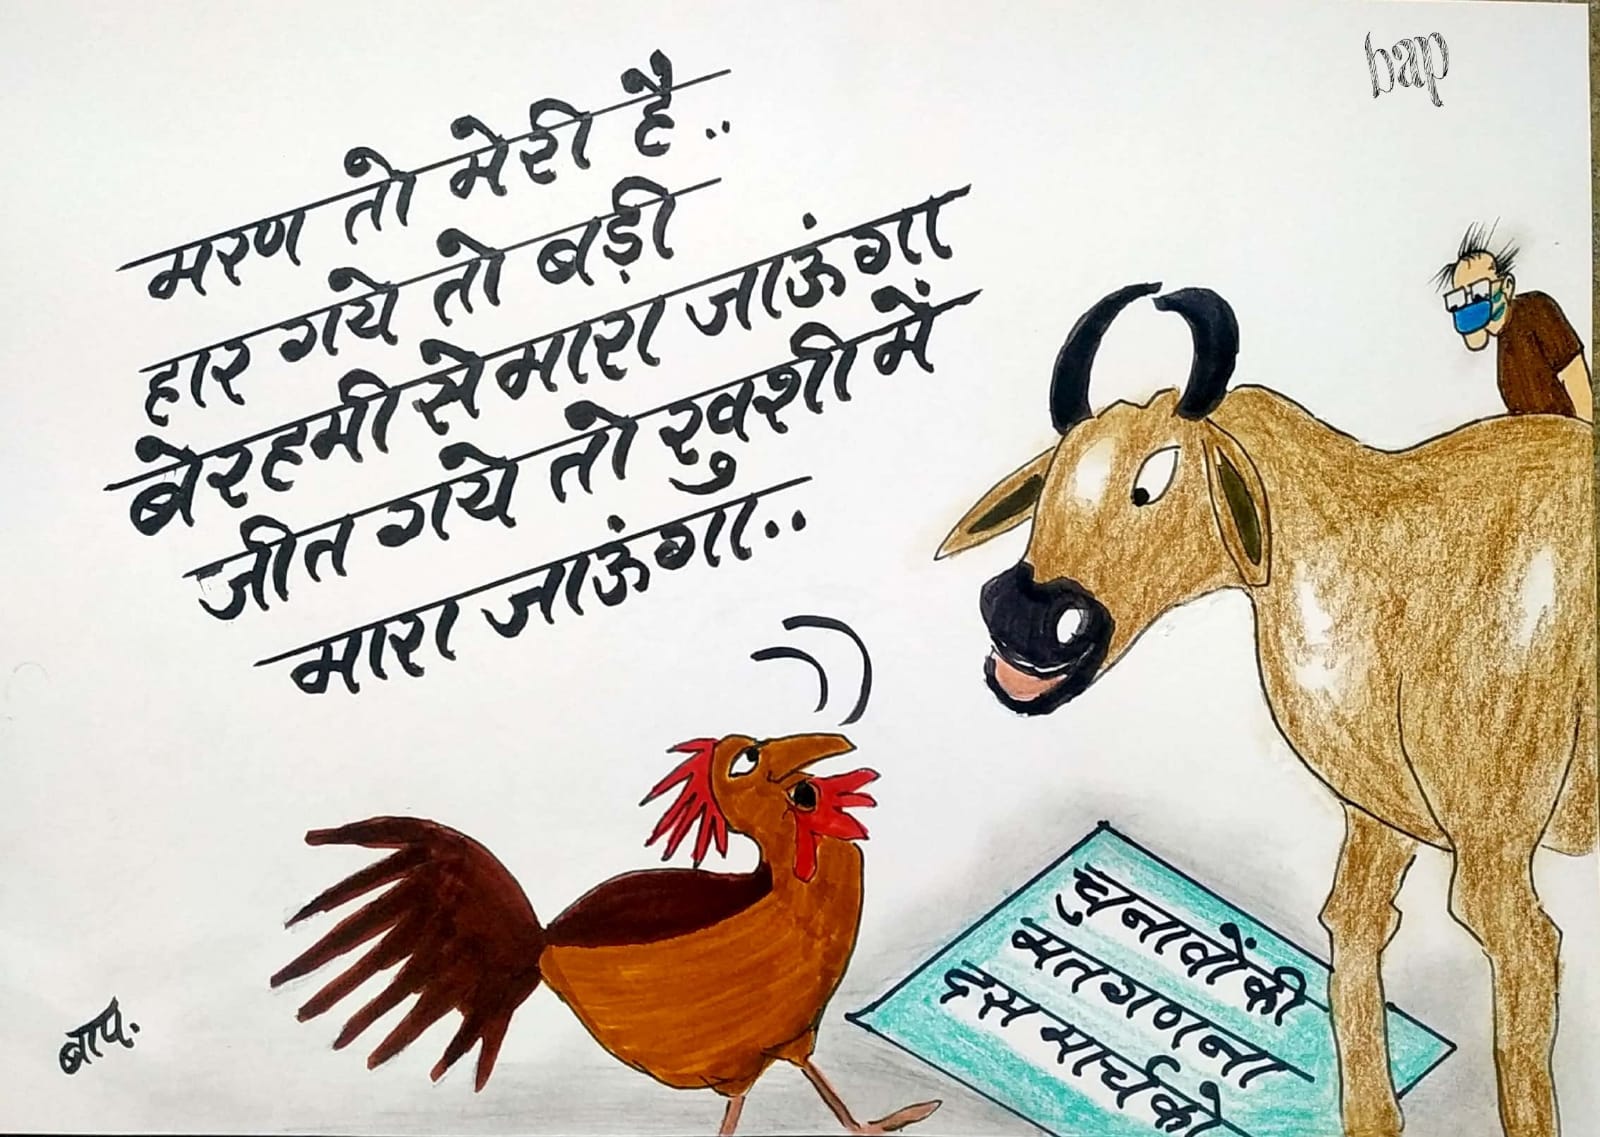 bap
मरण तो मेरी है..
हार गये तो बड़ी
बेरहमी से मारा जाऊंगा
जीत गये तो खुशी में
मारा जाऊंगा..
चुनावों की
मतगणना
दस मार्च को
बाप.